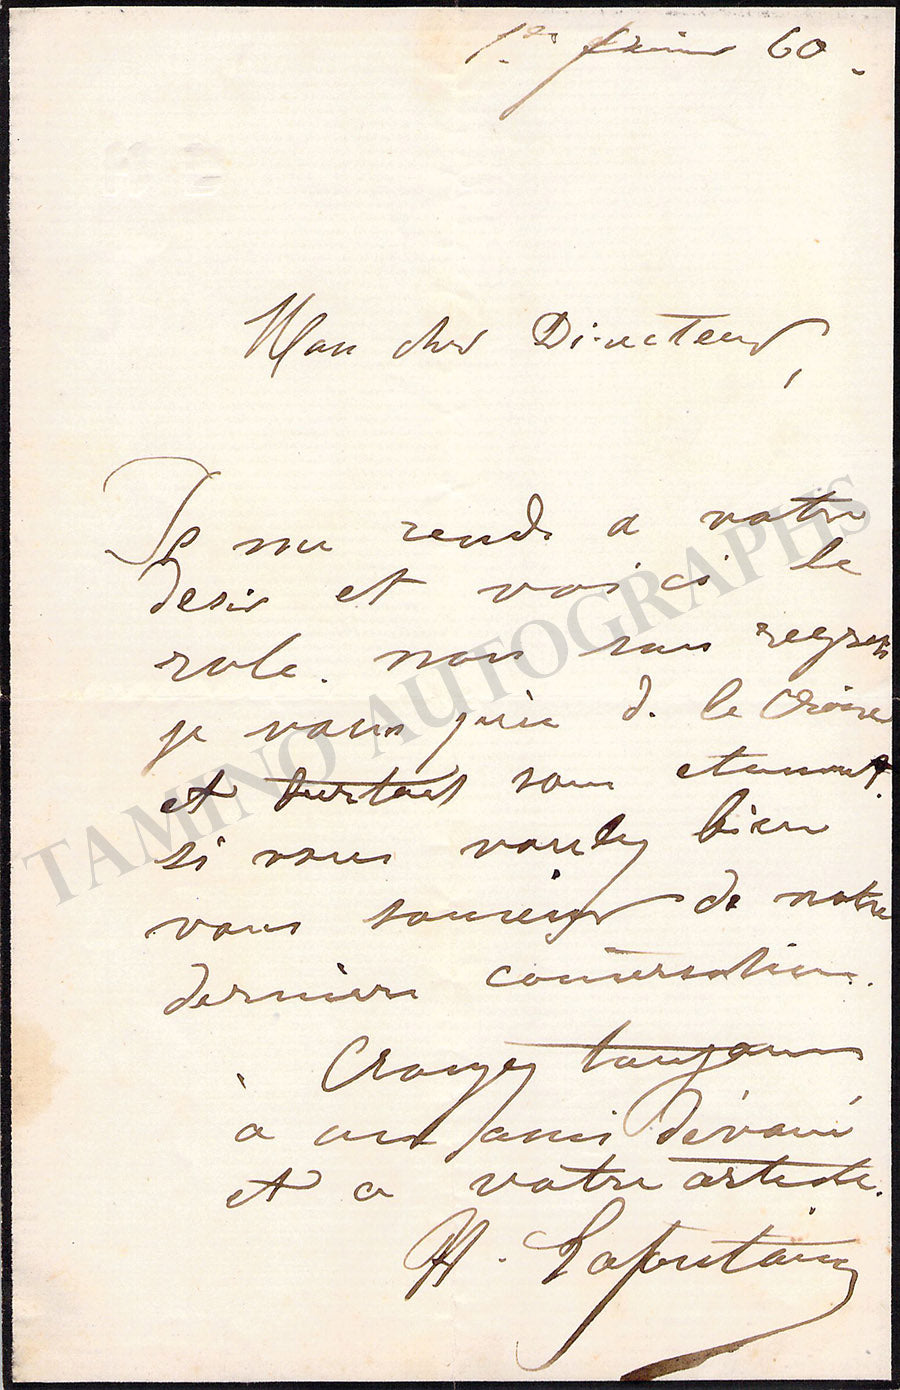 1er février 60.
Mon cher Directeur,
Je me rends a votre
desir et voici le
role. non sans regrets
je vous prie de le croire
et surtout sans
si vous voulez bien
vous souvenir de notre
derniere conversation.
Croyez toujours
à un ami dévoué
et a votre artiste.
H. Lafontaine
TAMINO AUTOGRAPHS